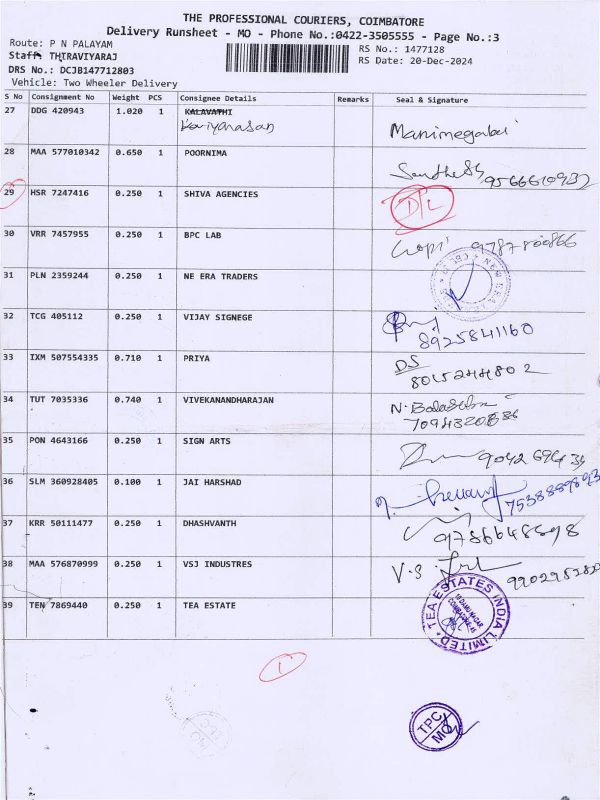 THE PROFESSIONAL COURIERS, COIMBATORE
Delivery Runsheet - MO - Phone No.:0422-3505555 - Page No.:3
Route: P N PALAYAM
RS No.: 1477128
Staff: THIRAVIYARAJ
RS Date: 20-Dec-2024
DRS No.: DCJB147712803
Vehicle: Two Wheeler Delivery
S No Consignment No Weight PCS Consignee Details Remarks Seal & Signature
27 DDG 420943 1.020 1 KALAVATHI
Kariyanasan Manimegalai
28 MAA 577010342 0.650 1 POORNIMA
9566610932
29 HSR 7247416 0.250 1 SHIVA AGENCIES D/L
30 VRR 7457955 0.250 1 BPC LAB
Gopi 9787800866
31 PLN 2359244 0.250 1 NE ERA TRADERS
32 TCG 405112 0.250 1 VIJAY SIGNEGE
8925841160
33 IXM 507554335 0.710 1 PRIYA DS
34 TUT 7035336 0.740 1 VIVEKANANDHARAJAN N. Balasubra
35 PON 4643166 0.250 1 SIGN ARTS
9042694 34
36 SLM 360928405 0.100 1 JAI HARSHAD
37 KRR 50111477 0.250 1 DHASHVANTH
38 MAA 576870999 0.250 1 VSJ INDUSTRES V.S.
39 TEN 7869440 0.250 1 TEA ESTATE
TEA ESTATES INDIA LIMITED
1
TPC
MO